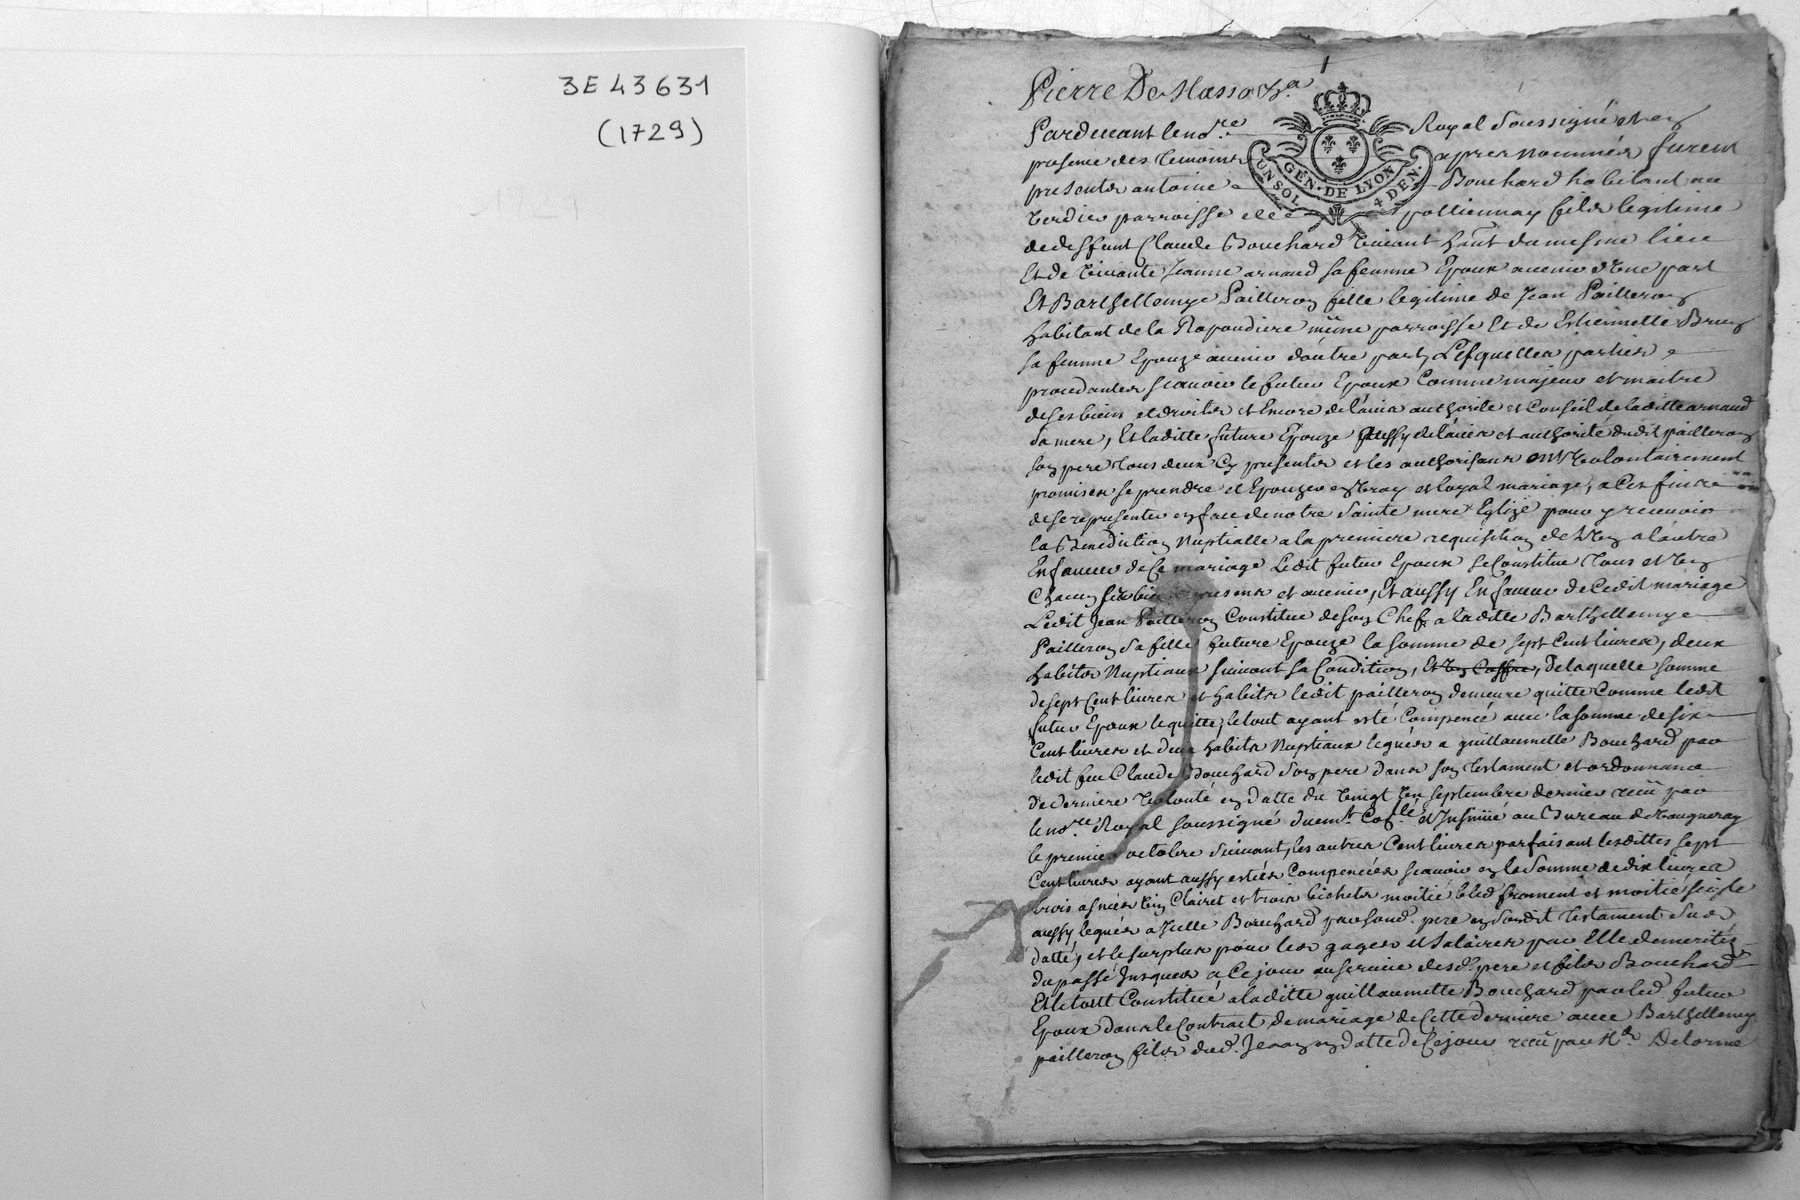 3E 43631
(1729)
Pierre De
Pardevant le no.re Royal soussigné et en
presence des temoins apres nommés furent
GEN. DE LYON
UN SOL. 4 DEN.
presents antoine Bouchard habitant au
Verdier parroisse de pollionnay fils legitime
de deffunt Claude Bouchard vivant ha͞nt du mesme lieu
Et de vivante Jeanne arnaud sa femme Epoux avenir d'vne part
Et Barthellemye Pailleron fille legitime de Jean Pailleron
habitant de la même parroisse Et de Estiennette Brun
sa femme Epouze avenir d'autre part, Lesquelles parties
procedantes scauoir le futur Epoux Comme majeur et maitre
de ses biens et droits et Encore de l'auis authorité et Conseil de laditte arnaud
sa mere, Et laditte future Epouze aussy de l'auis et authorité dudit pailleron
son pere tous deux Cy presents et les authorisans ont volontairement
promis se prendre et Epouzer en vray et loyal mariage, a Ces fins
de se representer en face de notre Sainte mere Eglize pour y receuoir
la Benediction Nuptialle a la premiere requisition de l'vn a l'autre
En faueur de Ce mariage Ledit futur Epoux se Constitue tous et vn
Chacun ses biens presens et avenir, Et aussy En faueur de Cedit mariage
Ledit Jean Pailleron Constitue de son Chef a laditte Barthellemye
Pailleron sa fille future Epouze la somme de sept Cent liures, deux
habits Nuptiaux suiuant sa Condition, Et vn Coffre, de laquelle somme
de sept Cent liures et habits ledit pailleron demeure quitte Comme ledit
futur Epoux le quitte, le tout ayant esté Compencé auec la somme de six
Cent liures et deux habits Nuptiaux legués a guillaumette Bouchard par
ledit feu Claude Bouchard son pere dans son testament et ordonnance
de derniere volonté en datte du vingt vn septembre dernier receu par
le no.re Royal soussigné duem.t Co.llé et Insinué au Bureau de Vaugneray
le premier octobre suiuant, les autres Cent liures parfaisant lesdittes sept
Cent liures ayant aussy estées Compencées scauoir en la somme de dix liures
trois asnées vin Clairet et trois bichets moitié bled froment et moitié seigle
aussy legués a Icelle Bouchard par son d. pere en son dit testament sus
datté, et le surplus pour les gages et salaires par Elle demerités
du passé Jusques a Ce jour au seruice desd. pere et fils Bouchard
Et le tout Constitué a laditte guillaumette Bouchard par led. futur
Epoux dans le Contract de mariage de Cette derniere auec Barthellemy
pailleron fils dud. Jean en datte de Ce jour receu par M.e Delorme